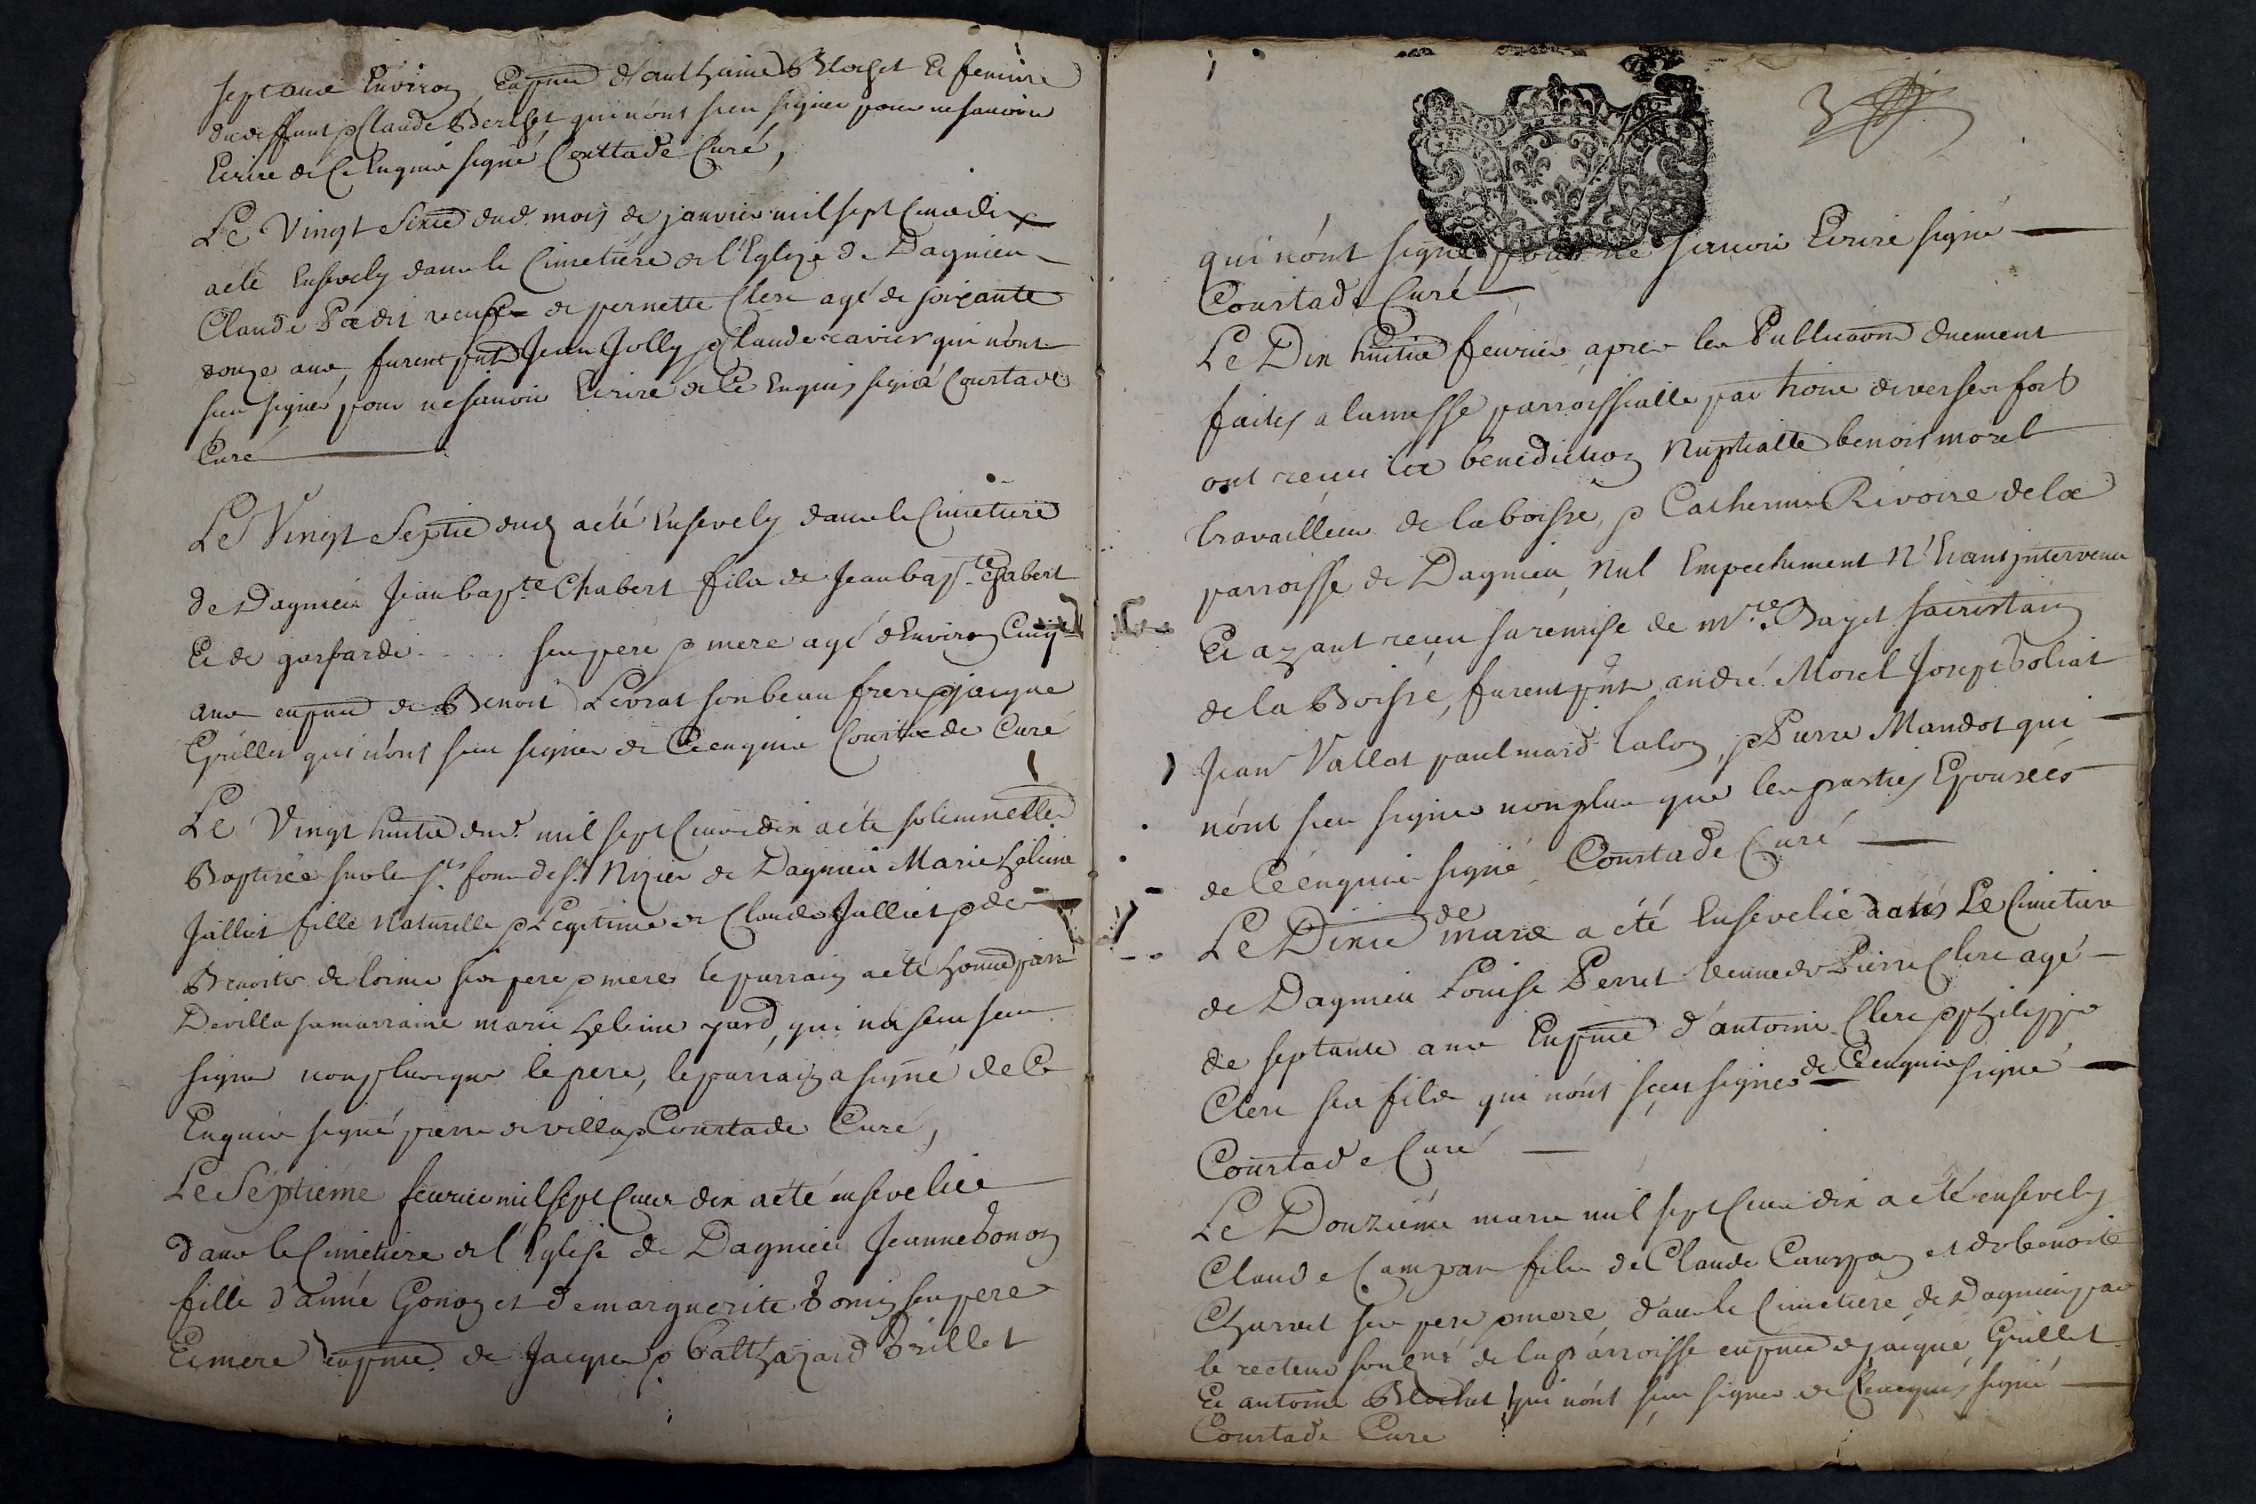 sept ans Environ Enpñce d'anthoine Blochet Et femme
du deffunt p Claude Berchet qui n'ont sceu signer pour ne sauoir
Ecrire de Ce Enquis signé Courtade Curé,
Le Vingt Sixie dud. mois de januier mil sept Cens dix
a eté Ensevely dans le Cimetiere de l'Eglize de Dagnieu
Claude de pernette Clere agé de soixante
douze ans, furent pñts Jean Jolly p Claude ravier qui n'ont
sceu signer pour ne sauoir Ecrire de Ce Enquis signé Courtade
Curé
Le Vingt Septie dud a eté Ensevely dans le Cimetiere
de Dagnieu Jean bapte Chabert fils de Jean bapte Chabert
Et de gasparde . . . . ses pere p mere agé d'Environ Cinq
ans enpñce de Benoit Levrat son beau frere p jacque
Grillet qui n'ont sceu signer de Ce enquis Courtade Curé
Le Vingt huitie dud. mil sept Cens dix a eté solemnelle
Baptisée sur les sts fons de st. Nizier de Dagnieu Marie helaine
Julliet fille Naturelle p Legitime de Claude Julliet p de
Benoite de lorme ses pere p mere le parrain a eté honné pierre
Devilla sa marraine marie helaine gard, qui n'a sceu
signer non plus que le pere, le parrain a signé de Ce
Enquis signé pierre devilla p Courtade Curé,
Le Séptiéme feurier mil sept Cens dix a eté ensevelie
dans le Cimetiere de l'Eglise de Dagnieu Jeanne Gonon
fille d'année Gonon et de marguerite ses pere
Et mere enpñce de Jacque p balthazard Grillet
3
qui n'ont signé pour ne scauoir Ecrire signé
Courtade Curé
Le Dix huitie feurier apres les Publicãons duement
faites a la messe parroissialle par trois diverses fois
ont receu la benediction Nuptialle benoit morel
travailleur de la boisse, p Catherine Rivoire de la
parroisse de Dagnieu Nul Empechement N'Etant intervenu
Et ayant receu sa remise de mre. Bayet sacristain
de la Boisse, furent pñts andré Morel Josept boliat
Jean Vallat paul mard talon, p Pierre Mandot qui
n'ont sceu signer non plus que les parties Epousées
de Ce enquis signé Courtade Curé
Le Dixie de mars a été Ensevelie dans Le Cimetiere
de Dagnieu Louise Perret Veuue de Pierre Clere agé
de septante ans Enpñce d'antoine Clere p philippe
Clere ses fils qui n'ont sceu signer de Ce enquis signé
Courtade Curé
Le Douziéme mars mil sept Cens dix a eté ensevely
Claude Campan fils de Claude Campan et de benoite
Charvet ses pere p mere dans le Cimetiere de Dagnieu par
le recteur sousné de la parroisse enpñce de jacque Grillet
Et antoine Blochet qui n'ont sceu signer de Ce enquis signé
Courtade Curé